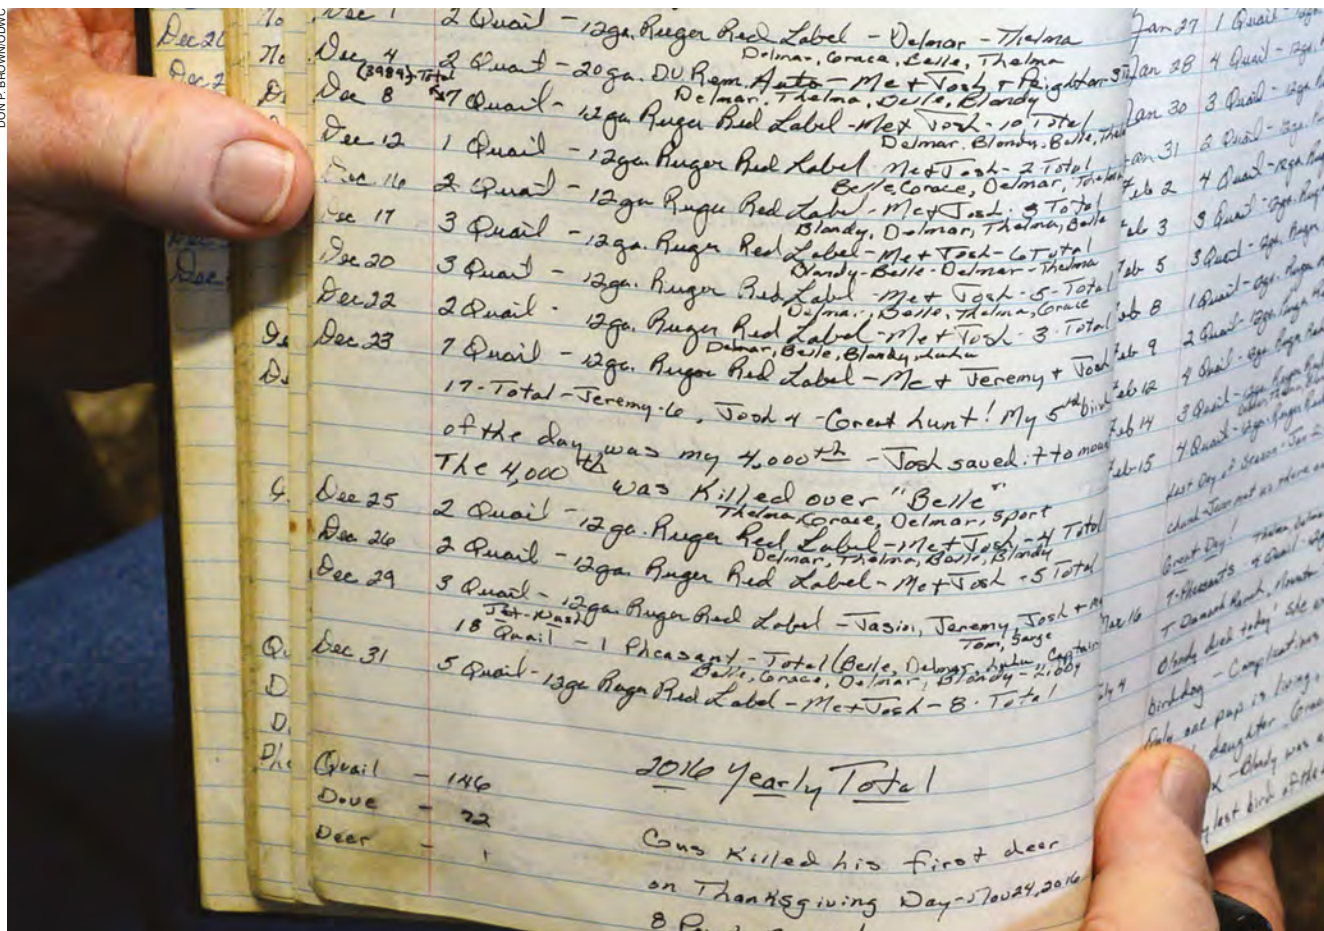 DON P. BROWN/ODWC
Dec 1 2 Quail - 12ga. Ruger Red Label - Delmar - Thelma
Delmar, Grace, Belle, Thelma
Dec 4 2 Quail - 20ga. DU Rem. Auto - Me + Josh +
(3989)-Total Delmar, Thelma, Belle, Blondy
Dec 8 7 Quail - 12ga Ruger Red Label - Me + Josh - 10 Total
Delmar, Blondy, Belle,
Dec 12 1 Quail - 12ga Ruger Red Label - Me + Josh - 2 Total
Belle, Grace, Delmar,
Dec 16 2 Quail - 12ga Ruger Red Label - Me + Josh - 3 Total
Blondy, Delmar, Thelma, Belle
Dec 17 3 Quail - 12ga. Ruger Red Label - Me + Josh - 6 Total
Blondy - Belle - Delmar - Thelma
Dec 20 3 Quail - 12ga. Ruger Red Label - Me + Josh - 5 - Total
Delmar, Belle, Thelma, Grace
Dec 22 2 Quail - 12ga. Ruger Red Label - Me + Josh - 3 - Total
Delmar, Belle, Blondy, LuLu
Dec 23 7 Quail - 12ga. Ruger Red Label - Me + Jeremy + Josh
17 - Total - Jeremy - 6, Josh 4 - Great hunt! My 5th bird
of the day was my 4,000th - Josh saved it to
The 4,000th was Killed over "Belle"
Thelma, Grace, Delmar, Sport
Dec 25 2 Quail - 12ga. Ruger Red Label - Me + Josh - 4 Total
Delmar, Thelma, Belle, Blondy
Dec 26 2 Quail - 12ga. Ruger Red Label - Me + Josh - 5 Total
Dec 29 3 Quail - 12ga. Ruger Red Label - Jasin, Jeremy, Josh + me
Tom, Sarge
18 Quail - 1 Pheasant - Total (Belle, Delmar, LuLu, Captain
Belle, Grace, Delmar, Blondy - Libby
Dec 31 5 Quail - 12ga Ruger Red Label - Me + Josh - 8 - Total
2016 Yearly Total
Quail - 146
Dove - 22
Deer - 1
Gus Killed his first deer
on Thanksgiving Day - Nov 24, 2016
Jan 27 1 Quail
Jan 28 4 Quail - 12ga.
Jan 30 3 Quail - 12ga.
Jan 31 2 Quail - 12ga.
Feb 2 4 Quail - 12ga.
Feb 3 3 Quail - 12ga.
Feb 5 3 Quail - 12ga. Ruger
Feb 8 1 Quail - 12ga. Ruger
Feb 9 2 Quail - 12ga. Ruger
Feb 12 4 Quail - 12ga Ruger
Feb 14 3 Quail - 12ga. Ruger
Feb 15 4 Quail - 12ga. Ruger
Last Day of Season
Great Day!
Mar 16
Blondy died today! She
July 4 birddog - Complications
Only one pup is living,
daughter Grace
- Blondy was
last bird of the